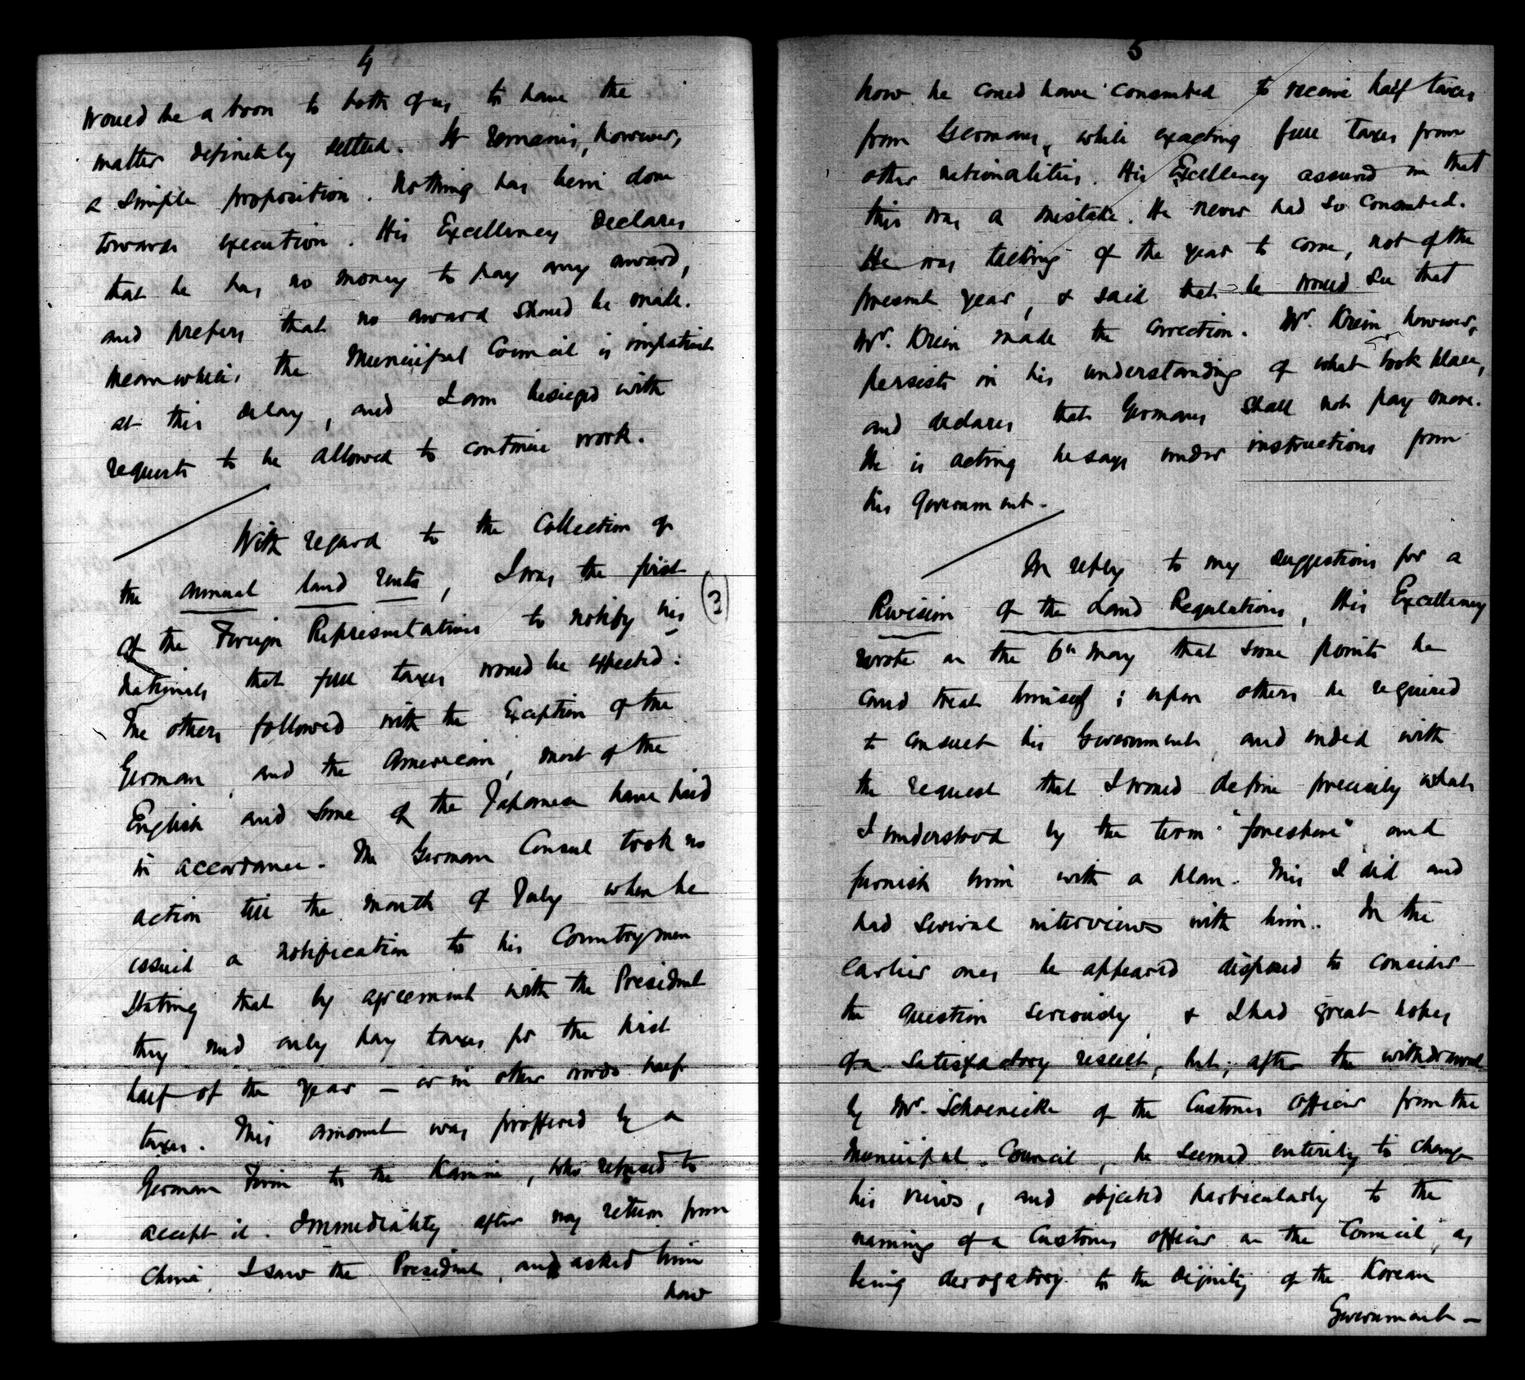 4
would be a boon to both of us to have the
matter definitely settled. It remains, however,
a simple proposition. Nothing has been done
towards execution. His Excellency declares
that he has no money to pay any award,
and prefers that no award should be made.
Meanwhile, the Municipal Council is impatient
at this delay, and I am besieged with
requests to be allowed to continue work.
With regard to the Collection of
the annual land rents, I was the first
(3)
of the Foreign Representatives to notify his
nationals that full taxes would be expected:
The others followed with the Exception of the
German, and the American, most of the
English and some of the Japanese have paid
in accordance. The German Consul took no
action till the month of July when he
issued a notification to his Countrymen
stating that by agreement with the President
they need only pay taxes for the first
half of the year — or in other words half
taxes. This amount was proffered by a
German Firm to the Kamni, who refused to
accept it. Immediately after my return from
China, I saw the President, and asked him
how
5
how he could have consented to receive half taxes
from Germans, while exacting full taxes from
other nationalities. His Excellency assured me that
this was a mistake. He never had so consented.
He was talking of the year to come, not of the
present year, & said that he would see that
Mr. Krien made the correction. Mr. Krien, however,
persists in his understanding of what took place,
and declares that Germans shall not pay more.
He is acting he says under instructions from
his Government.
In reply to my suggestions for a
Revision of the Land Regulations, His Excellency
wrote on the 6th May that some points he
could treat himself; upon others he required
to consult his Government, and ended with
the request that I would define precisely what
I understood by the term "foreshore" and
furnish him with a plan. This I did and
had several interviews with him. In the
earlier ones he appeared disposed to consider
the question seriously, & I had great hopes
of a satisfactory result, but, after the withdrawal
by Mr. Schoenicke of the Customs Officer from the
Municipal Council, he seemed entirely to change
his views, and objected particularly to the
naming of a Customs officer on the Council, as
being derogatory to the dignity of the Korean
Government —